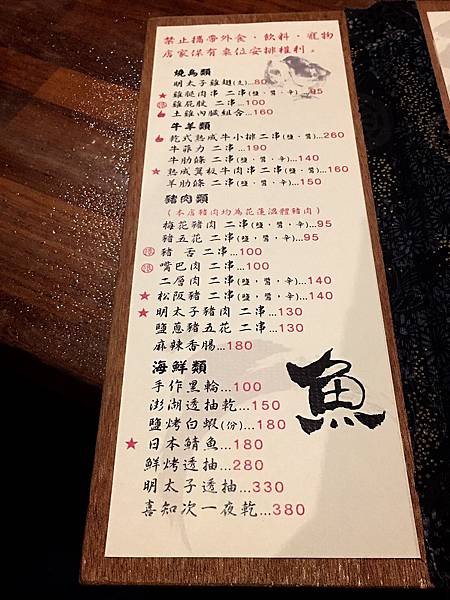 禁止攜帶外食·飲料·寵物
店家保有桌位安排權利。
燒鳥類
明太子雞翅(支)...80
★雞腿肉串 二串(鹽,醬,辛)...95
雞屁股 二串...100
土雞內臟組合...160
牛羊類
乾式熟成牛小排二串(鹽,醬)...260
牛菲力 二串...190
牛肋條 二串(鹽,醬)...140
★熟成翼板牛肉串二串(鹽,醬)...160
羊肋條 二串(鹽,醬,辛)...150
豬肉類
(本店豬肉均為花蓮溫體豬肉)
梅花豬肉 二串(鹽,醬,辛)...95
豬五花 二串(鹽,醬,辛)...95
豬 舌 二串...100
嘴巴肉 二串...100
二層肉 二串(鹽,醬,辛)...140
★松阪豬 二串(鹽,醬,辛)...140
★明太子豬肉 二串...130
鹽蔥豬五花 二串...130
麻辣香腸...180
海鮮類
手作黑輪...100
澎湖透抽乾...150
鹽烤白蝦(份)...180
★日本鯖魚...180
鮮烤透抽...280
明太子透抽...330
喜知次一夜乾...380
魚